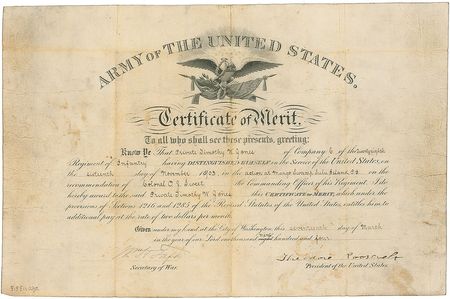 ARMY OF THE UNITED STATES.
Certificate of Merit.
To all who shall see these presents, greeting:
Know Ye That Private Timothy of Company C of the
Regiment of Infantry having DISTINGUISHED HIMSELF in the Service of the United States, on
the sixteenth day of November 1903 in the action at Island P.I. on the
recommendation of Colonel the Commanding Officer of his Regiment. I do
hereby award to the said Private Timothy this CERTIFICATE OF MERIT, which under the
provisions of Sections 1216 and 1285 of the Revised Statutes of the United States entitles him to
additional pay at the rate of two dollars per month.
Given under my hand at the City of Washington this seventeenth day of March
in the year of our Lord one thousand nine hundred and four
Wm H Taft
Theodore Roosevelt
Secretary of War.
President of the United States.